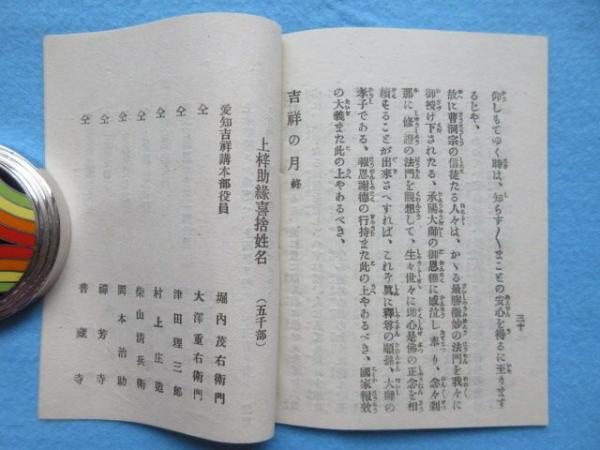 仰しもてゆく時は、知らず〱まことの安心を得るに至ります
るとや、
故に曹洞宗の信徒たる人々は、かゝる最勝微妙の法門を我々に
御授け下されたる、承陽大師の御恩德に感泣し奉り、念々刹
那に、修證の法門を觀想して、生々世々に卽心是佛の正念を相
續することが出來さへすれば、これぞ眞に釋尊の順孫、大師の
孝子である、報恩謝德の行持また此の上やあるべき、國家報效
の大義また此の上やあるべき、
三十
吉祥の月 終
上梓助緣喜捨姓名 (五千部)
愛知吉祥講本部役員 堀內茂右衞門
仝 大澤重右衞門
仝 津田理三郎
仝 村上庄造
仝 柴山淸兵衞
仝 岡本治助
仝 禪芳寺
仝 普藏寺